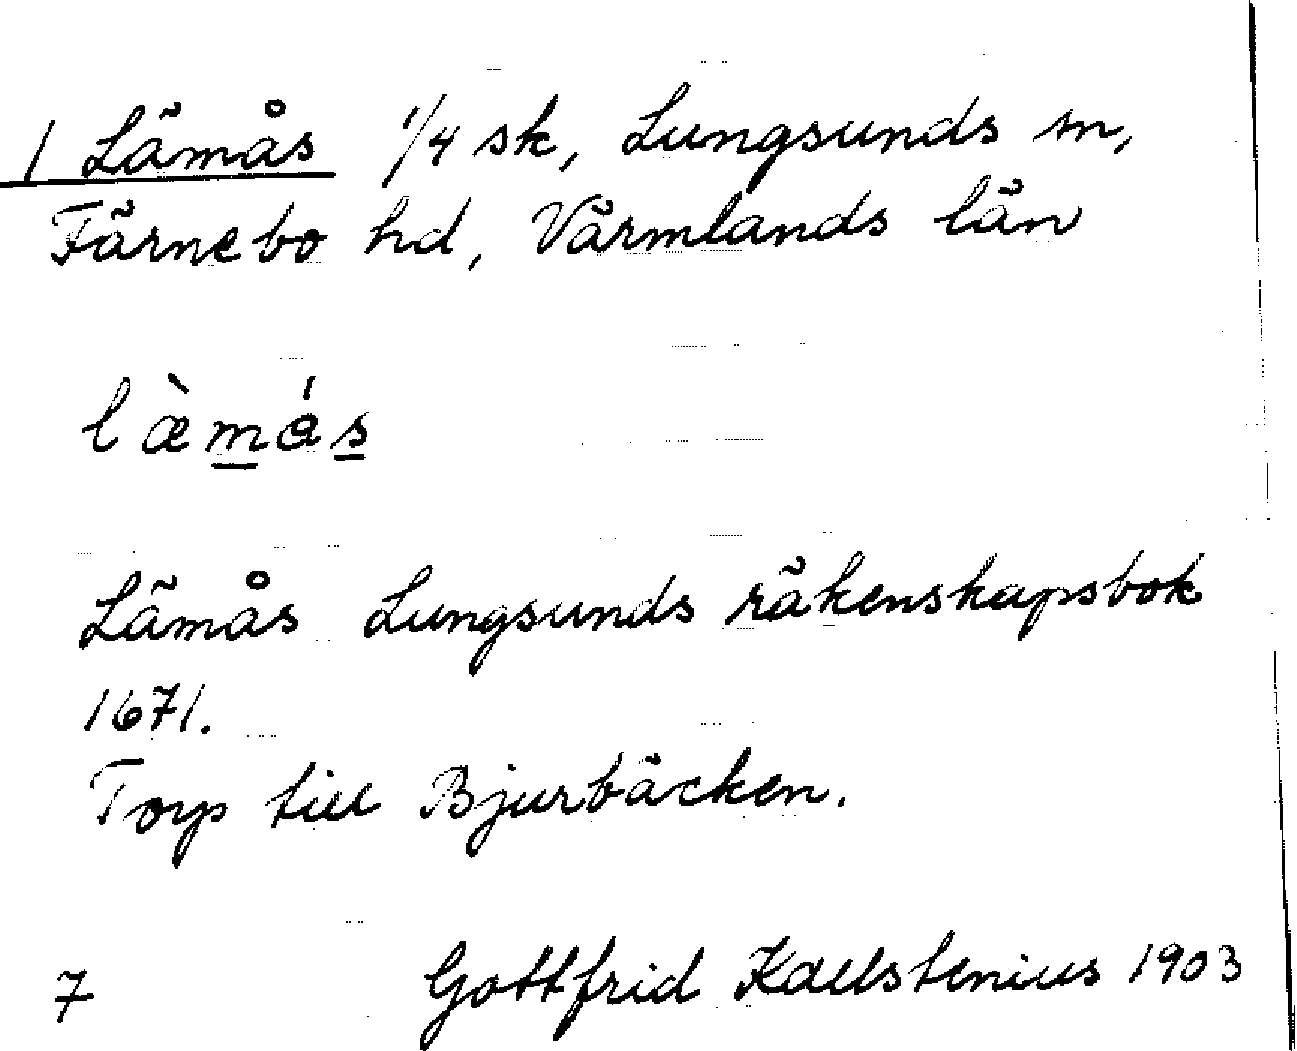 1 Lämås 1/4 sk, Lungsunds sn,
Färnebo hd, Värmlands län
là̀emás
Lämås Lungsunds räkenskapsbok
1671.
Torp till Bjurbäcken.
7 Gottfrid Kallstenius 1903